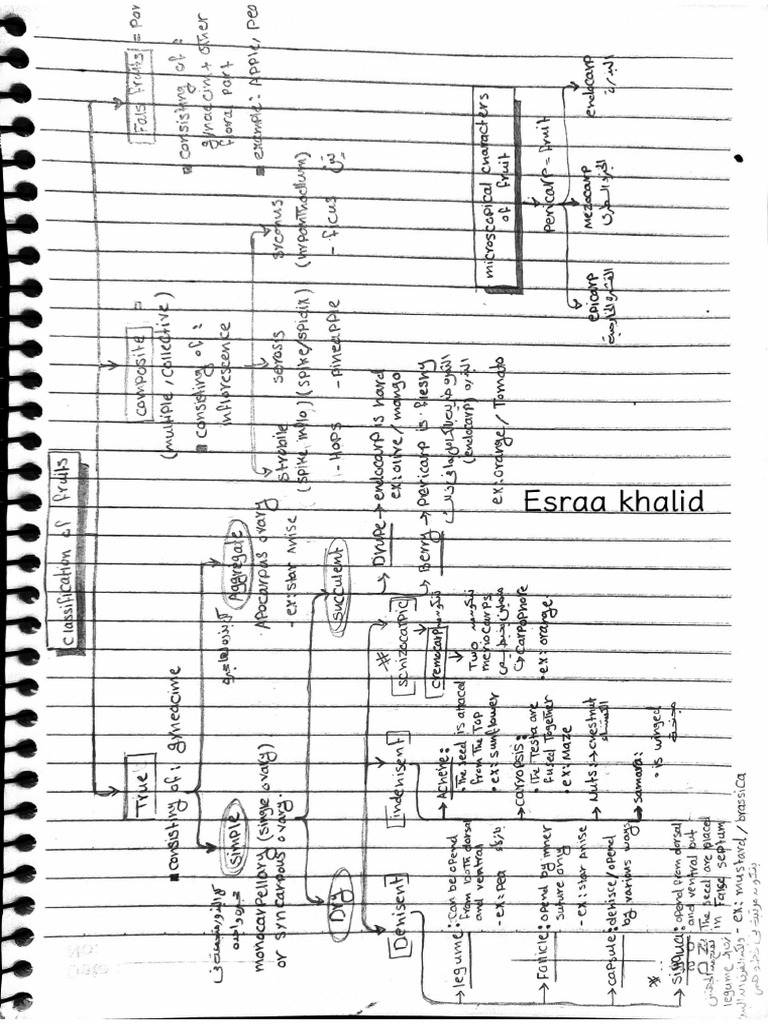 Classification of fruits
True
■ consisting of: gyneacime
Simple
monocarpellary (single ovary)
or syncarpous ovary.
Aggregate
Apocarpus ovary
- ex: star anise
composite =
(multiple, collective)
■ consisting of:
inflorescence
strobile
(spike, inflo,)
- Hops
sorosis
(spike/spidix)
- pineapple
syconus
(hypanthodium)
- ficus تين
Fals fruits = Par
■ consisting of:
gynaecim + other
floral part
■ example: APPle, Pea
Dry
Succulent
Drupe → endocarp is hard
ex: olive/mango
Berry → Pericarp is fleshy
(endocarp)
ex: orange/Tomato
Dehisent
legume: can be opend
from both dorsal
and ventral
- ex: pea بازلاء
Follicle: opend by inner
suture only
- ex: star anise
capsule: dehisce/opend
by various ways
opend from dorsal
and ventral but
The seed are placed
in False septum
- ex: mustard / brassica
indehisent
Acheive:
The seed is attacal
from the Top
• ex: sunflower
carropsis:
• the Testa are
fused together
• ex: Maze
Nuts: → chestnut
samara:
• is winged
schizocarpic
cremocarp
Two
merocarps
↳ carpophore
• ex: orange
microscopical characters
of fruit
Pericarp = fruit
epicarp
Mezocarp
endocarp
Esraa khalid